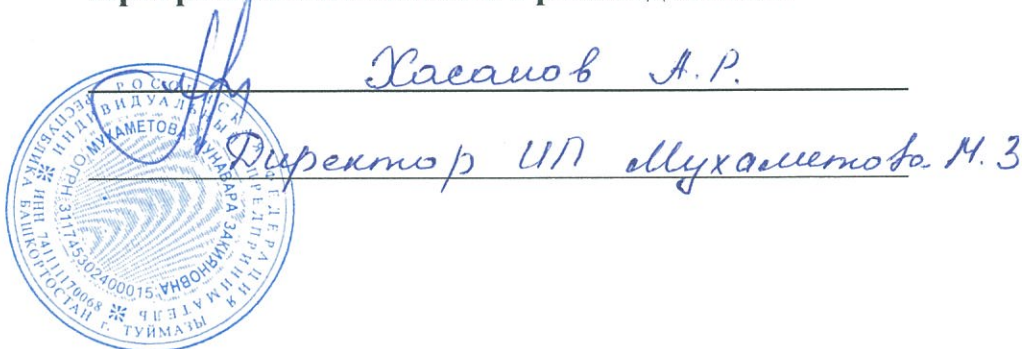 Хасанов А.Р.
Директор ИП Мухаметова М.З
РОССИЙСКАЯ ФЕДЕРАЦИЯ
РЕСПУБЛИКА БАШКОРТОСТАН г. ТУЙМАЗЫ
ИНДИВИДУАЛЬНЫЙ ПРЕДПРИНИМАТЕЛЬ
ИНН 741111170068
МУХАМЕТОВА МУНАВАРА ЗАКИЯНОВНА
ОГРН 311745302400015